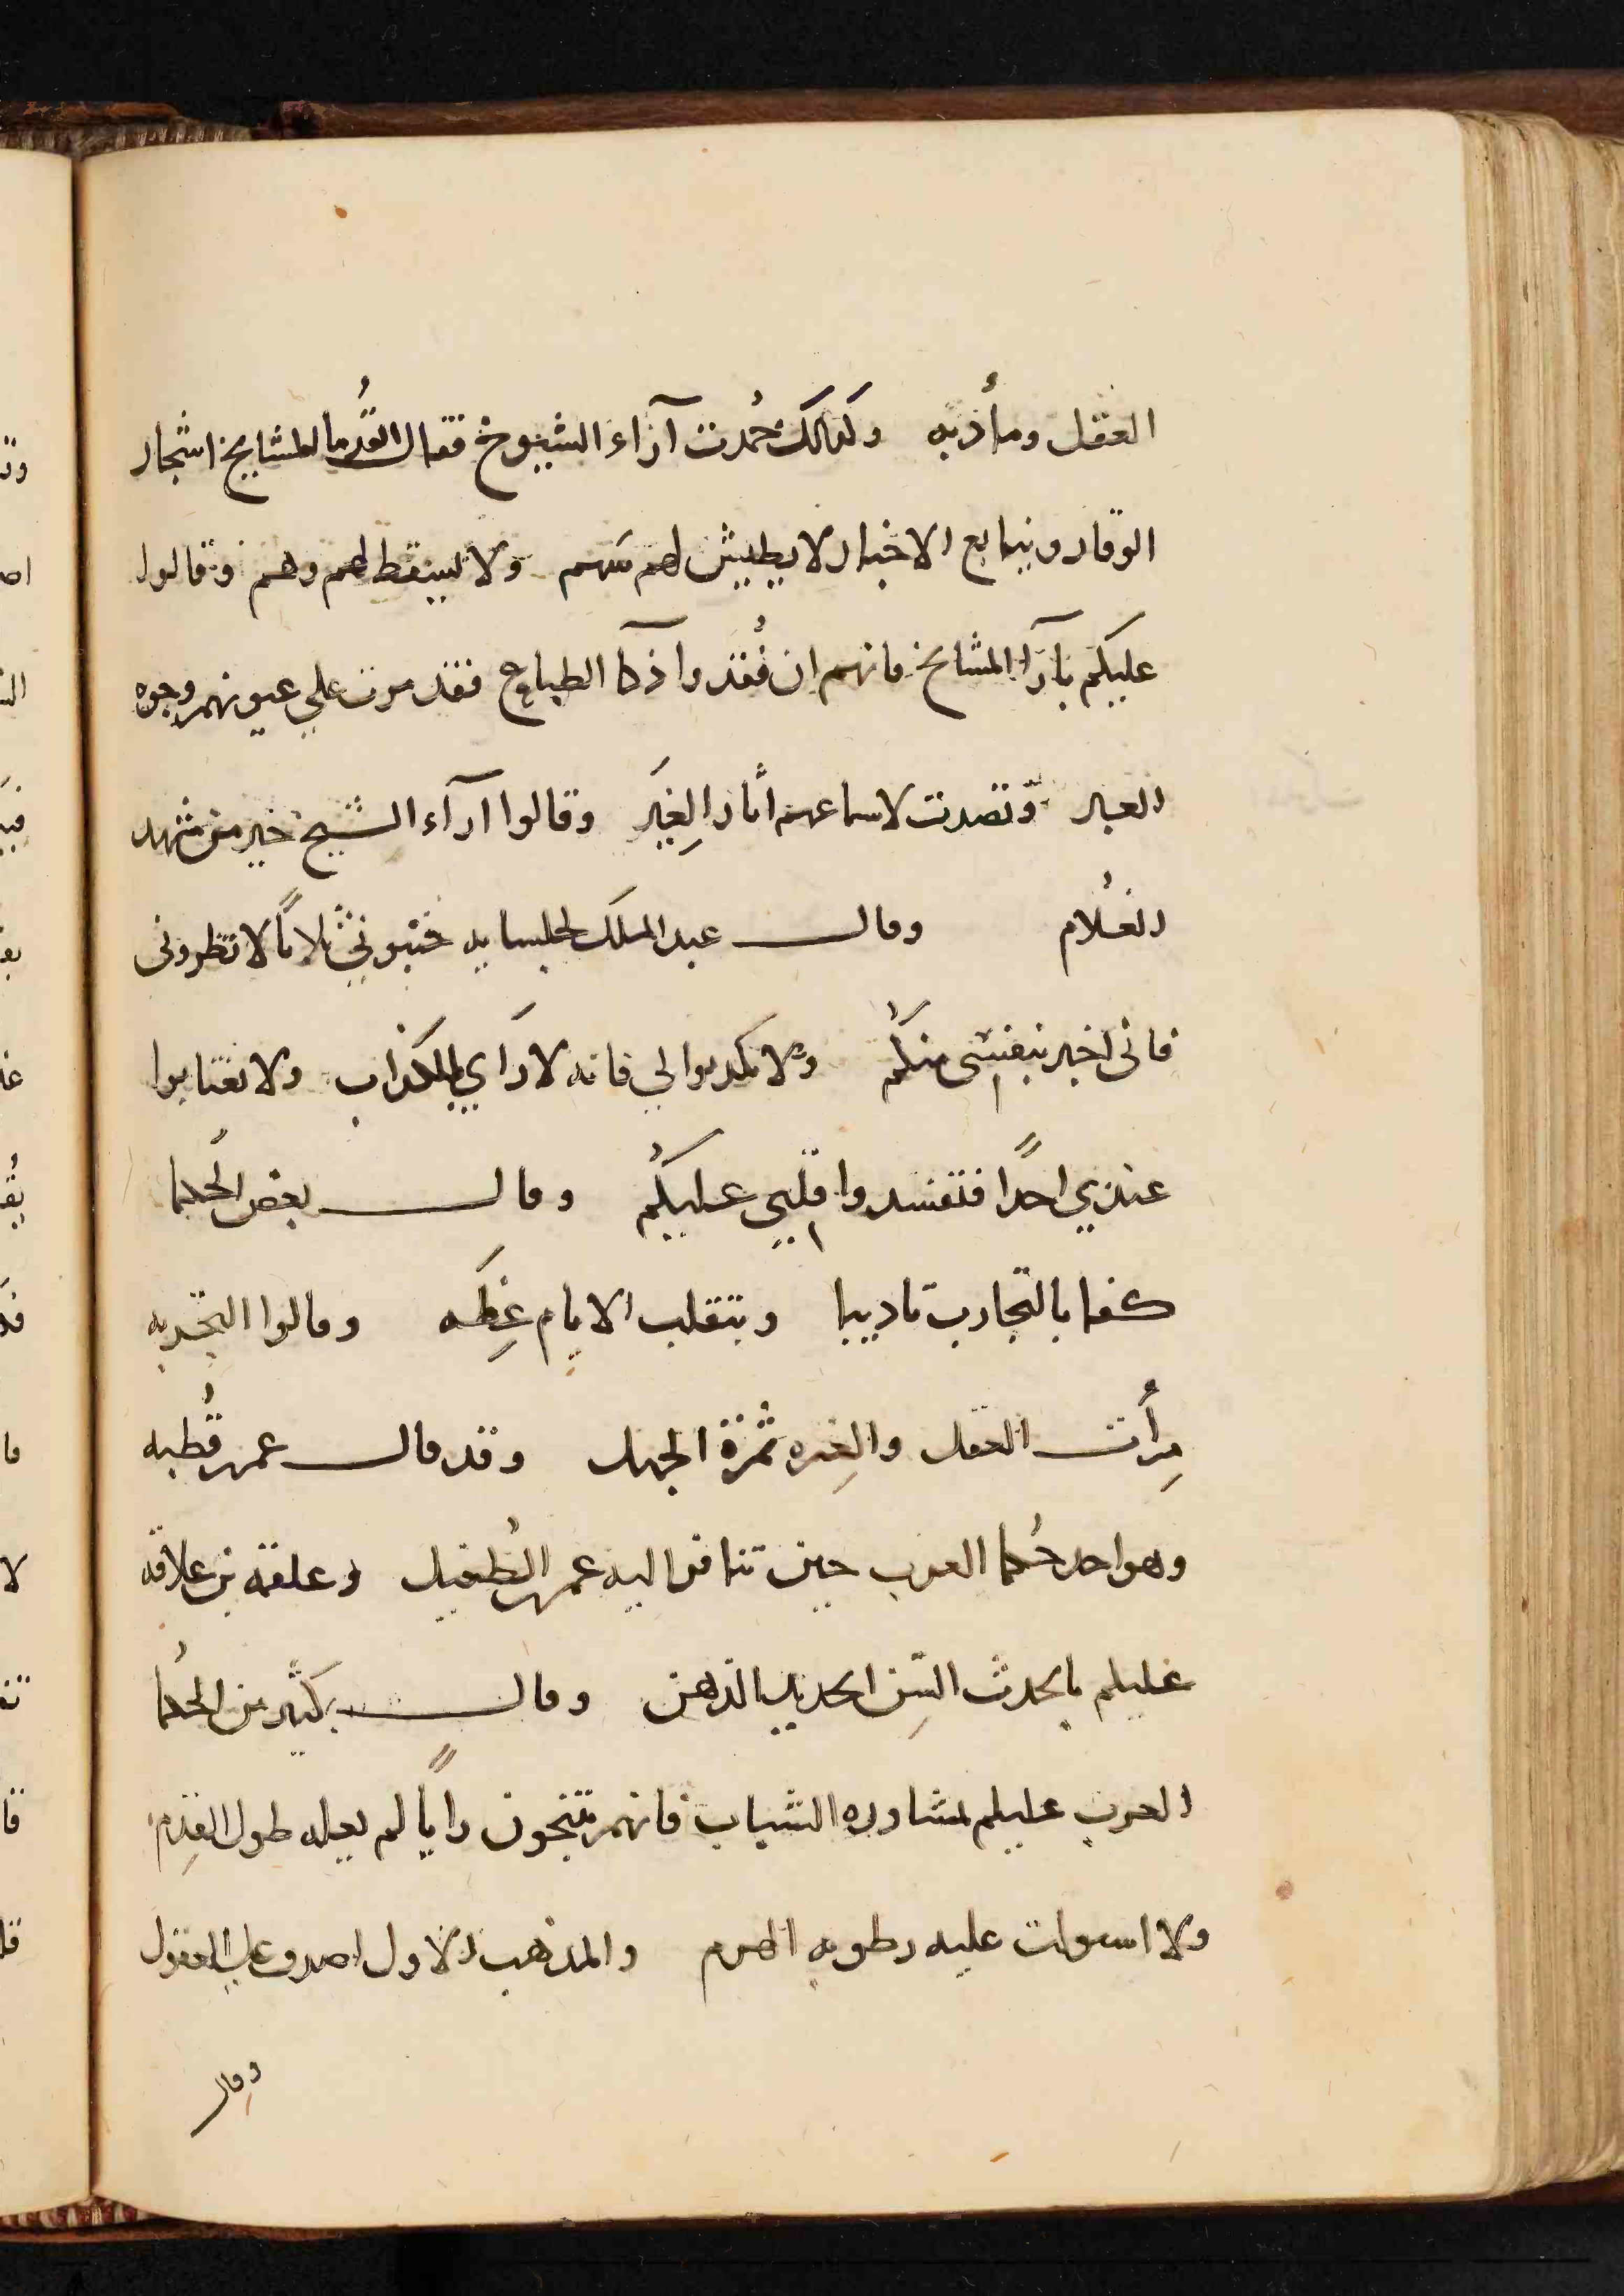 العقل ومأذبه وكذلك حُمدت آرَاء الشيوخ فقال القُدما المشايخ اشجار
الوقار وينابيع الاخبار لا يطيش لهم سَهم ولا يسقط لهم وهم وقالوا
عليكم بآرَا المشايخ فانهم ان فُقدوا ذكا الطباع فقد مرت علي عيونهم وجوه
العبر وتصدت لاسماعهم اثار الِغيَر وقالوا آرآء الشيخ خير من مشهد
الغُلام وقال عبد الملك لجلسايه جنبوني ثلاثاً لا تطروني
فاني اخبر بنفسي منكُم ولا تكذبوا لي فانه لا رَاي للمكذاب ولا تغتابوا
عندي احدًا فتفسدوا قلبي عليكُم وقال بعض الحُكما
كفا بالتجارب تاديبا وبتقلب الايام عِظَه وقالوا التجَربه
مِرأُت العقل والغِره ثمرة الجهل وقد قال عمر قُطبه
وهو احد حُكما العرب حين تنافرا اليه عمر الطُفيل وعلقمه بن علاقه
عليكم بالحدث السِن الحديد الذهن وقال كثير من الحُكما
العرب عليكم بمشاوره الشباب فانهم ينتجون راياً لم يعله طول القِدم
ولا استولت عليه رطوبه الهرم والمذهب الاول اصدق علي العقول
وقال